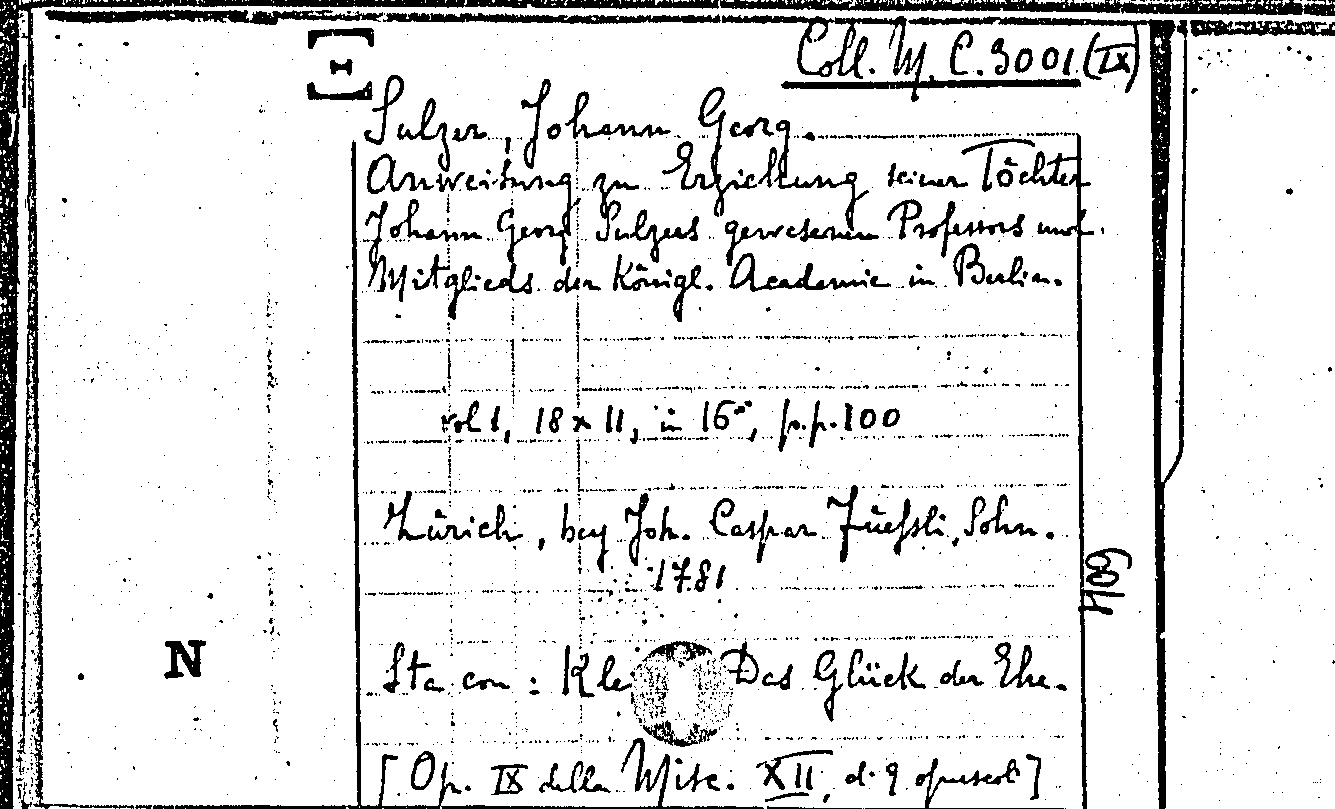 Coll. M. C. 3001 (IX)
Sulzer, Johann Georg.
Anweisung zu Erziehung seiner Töchter
Johann Georg Sulzers gewesenen Professors und
Mitglieds der Königl. Academie in Berlin.
vol 1, 18 x 11, in 16°, p.p. 100
Zürich, bey Joh. Caspar Füessli, Sohn.
1781
409
N
Sta con: Kle Das Glück der Ehe.
[Op. IX della Misc. XII, di 9 opuscoli]